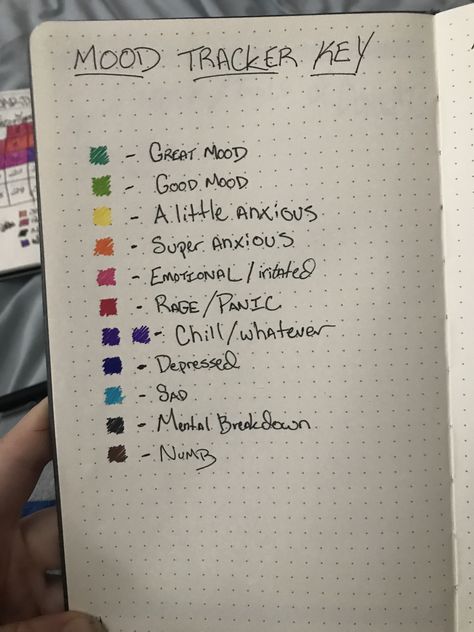 MOOD TRACKER KEY
- GREAT MOOD
- GOOD MOOD
- A little anxious
- Super anxious
- EMOTIONAL / irritated
- RAGE/PANIC
- Chill/whatever
- Depressed
- SAD
- Mental Breakdown
- NUMB